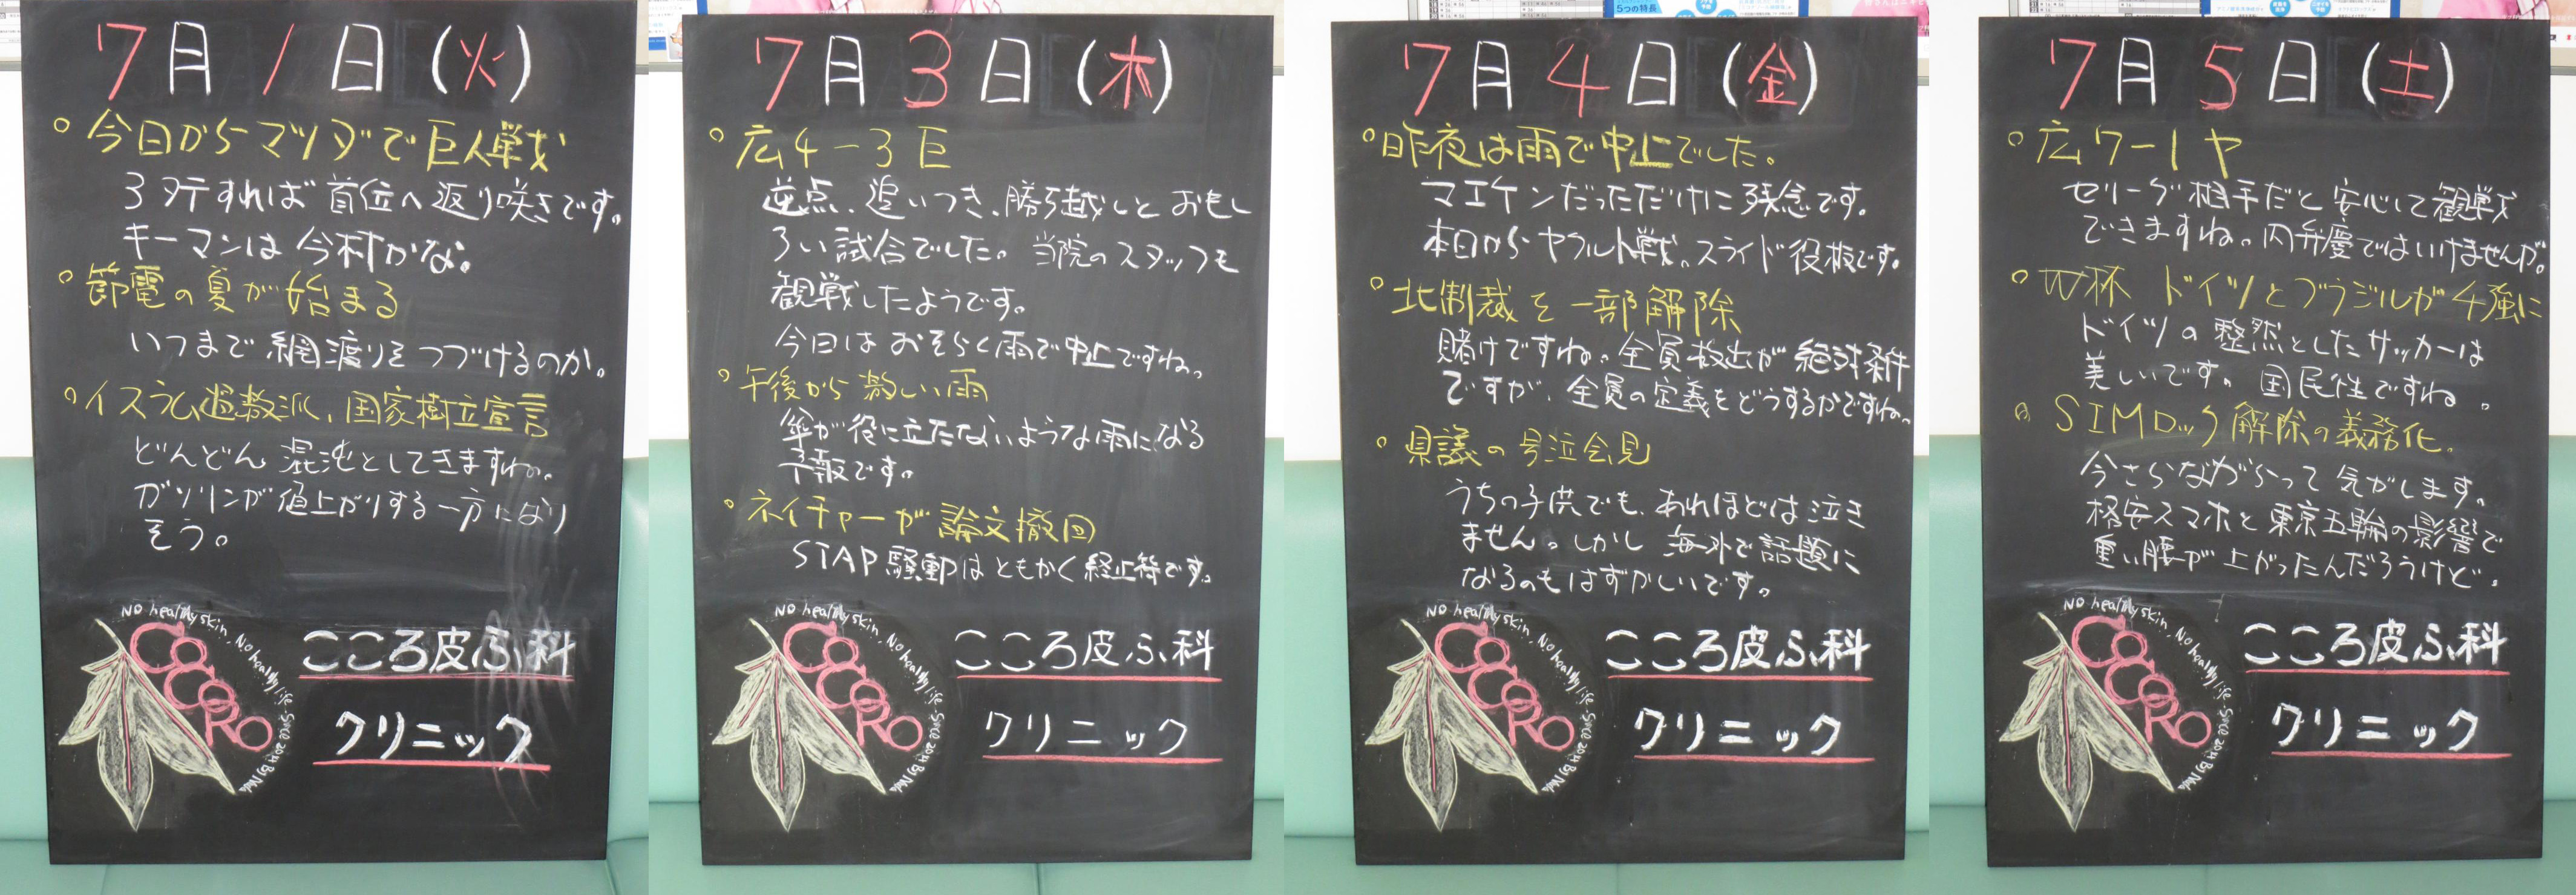 7月1日(火)
○今日からマツダで巨人戦
3タテすれば首位へ返り咲きです。
キーマンは今村かな。
○節電の夏が始まる
いつまで網渡りをつづけるのか。
○イスラム過激派、国家樹立宣言
どんどん混沌としてきますね。
ガソリンが値上がりする一方になり
そう。
No healthy skin, No healthy life
CoCoRO
こころ皮ふ科
クリニック
7月3日(木)
○広4-3巨
逆点、追いつき、勝ち越しとおもし
ろい試合でした。当院のスタッフも
観戦したようです。
今日はおそらく雨で中止ですね。
○午後から激しい雨
傘が役に立たないような雨になる
予報です。
○ネイチャーが論文撤回
STAP騒動はともかく終止符です。
No healthy skin, No healthy life
CoCoRO
こころ皮ふ科
クリニック
7月4日(金)
○昨夜は雨で中止でした。
マエケンだっただけに残念です。
本日からヤクルト戦。スライド役板です。
○北制裁を一部解除
賭けですね。全員救出が絶対条件
ですが、全員の定義をどうするかですね。
○県議の号泣会見
うちの子供でも、あれほどは泣き
ません。しかし海外で話題に
なるのもはずかしいです。
No healthy skin, No healthy life
CoCoRO
こころ皮ふ科
クリニック
7月5日(土)
○広7-1ヤ
セリーグ相手だと安心して観戦
できますね。内弁慶ではいけませんが。
○W杯 ドイツとブラジルが4強に
ドイツの整然としたサッカーは
美しいです。国民性ですね。
○SIMロック解除の義務化。
今さらながらって気がします。
格安スマホと東京五輪の影響で
重い腰が上がったんだろうけど。
No healthy skin, No healthy life
CoCoRO
こころ皮ふ科
クリニック